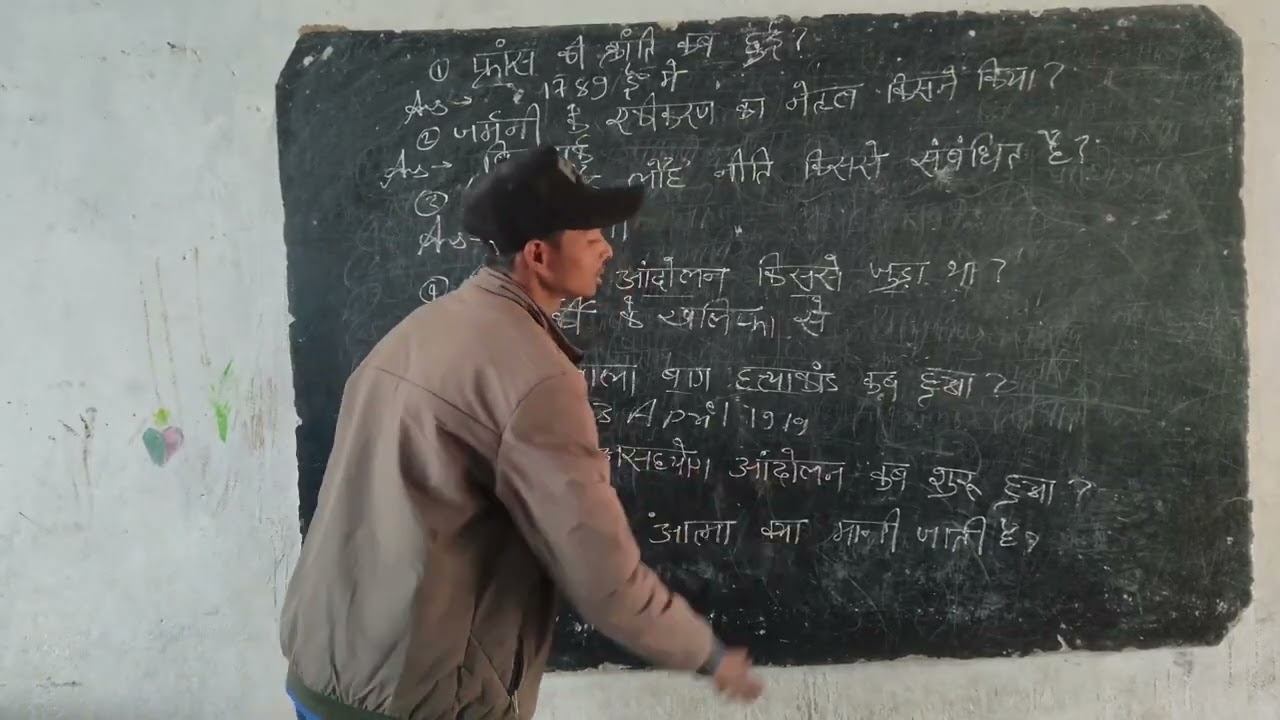 ① फ्रांस की क्रांति कब हुई?
Ans → 1789 ई० में
② जर्मनी के एकीकरण का नेतृत्व किसने किया?
Ans →
③ लौह नीति किससे संबंधित है?
Ans →
④ आंदोलन किससे जुड़ा था?
के खलिफा से
बाग हत्याकांड कब हुआ?
April 1919
असहयोग आंदोलन कब शुरू हुआ?
आत्मा क्या मानी जाती है?